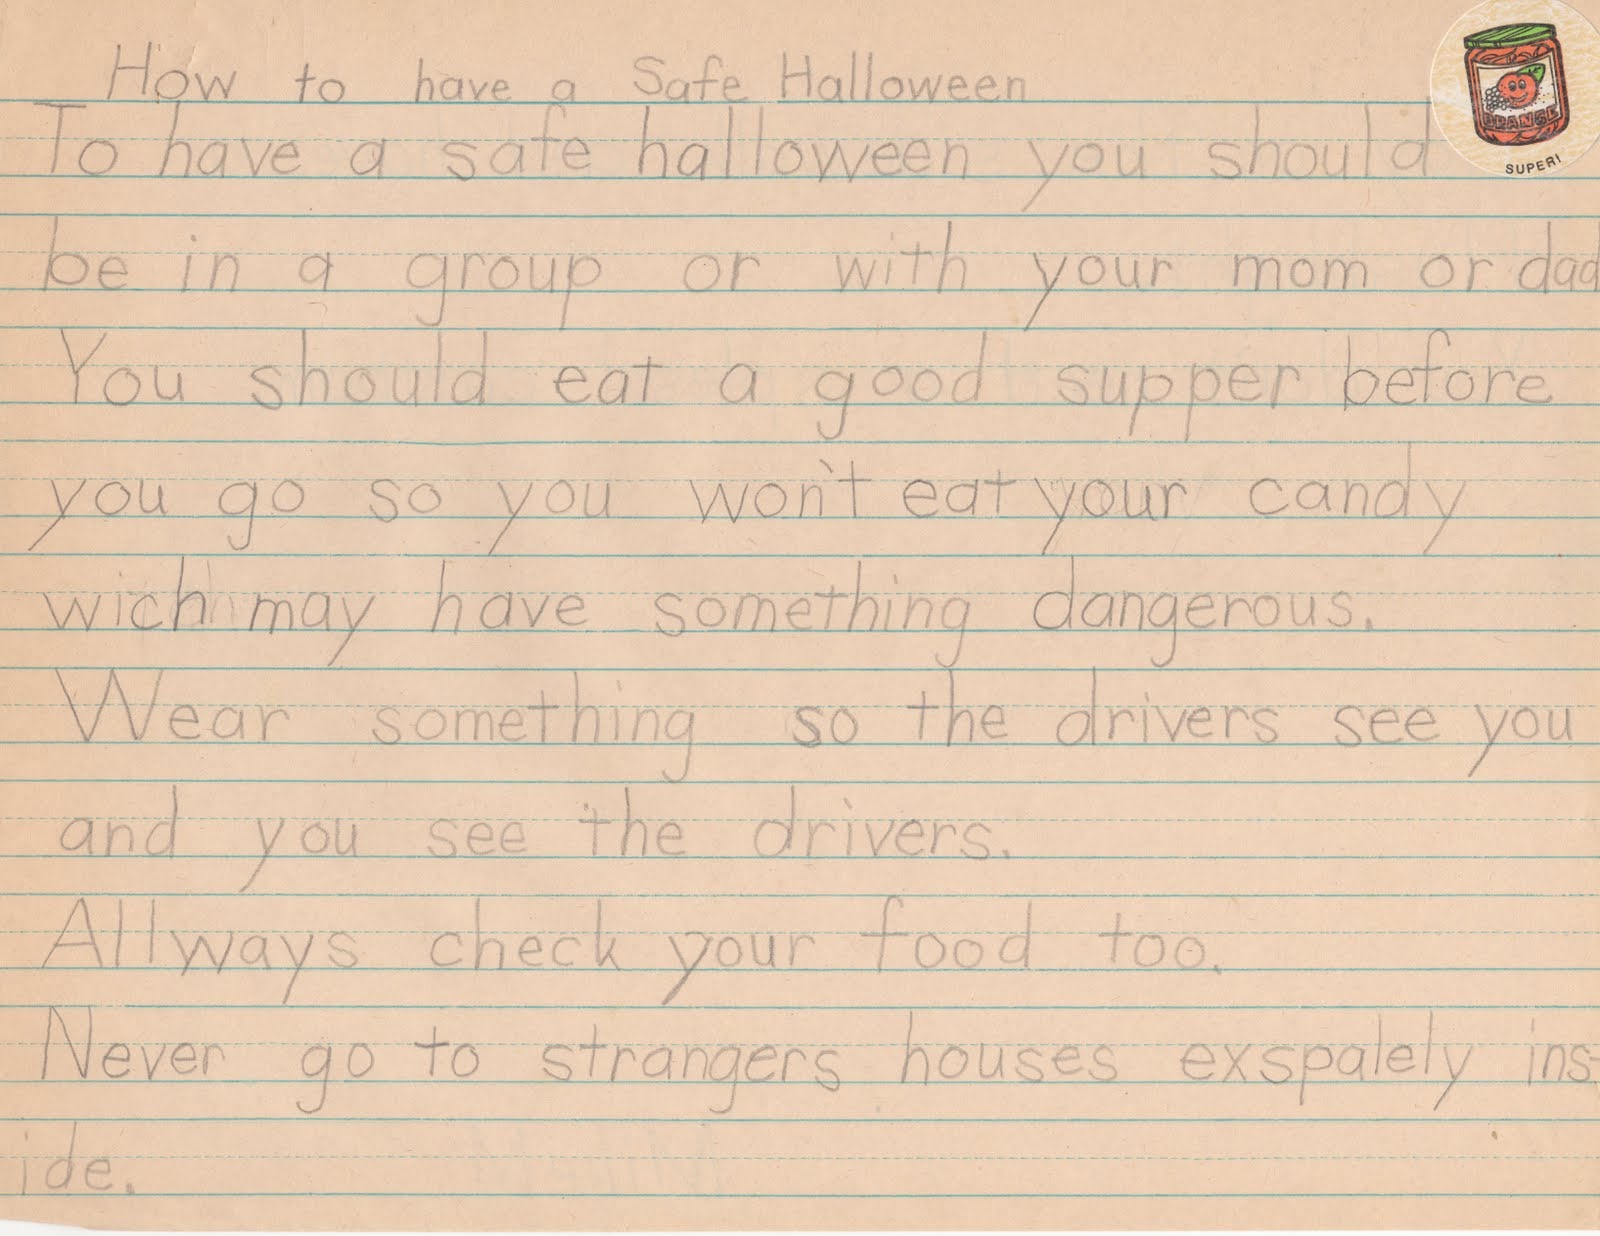 How to have a Safe Halloween
To have a safe halloween you should
be in a group or with your mom or dad
You should eat a good supper before
you go so you won't eat your candy
wich may have something dangerous.
Wear something so the drivers see you
and you see the drivers.
Allways check your food too.
Never go to strangers houses exspalely ins-
ide.
ORANGE
SUPER!